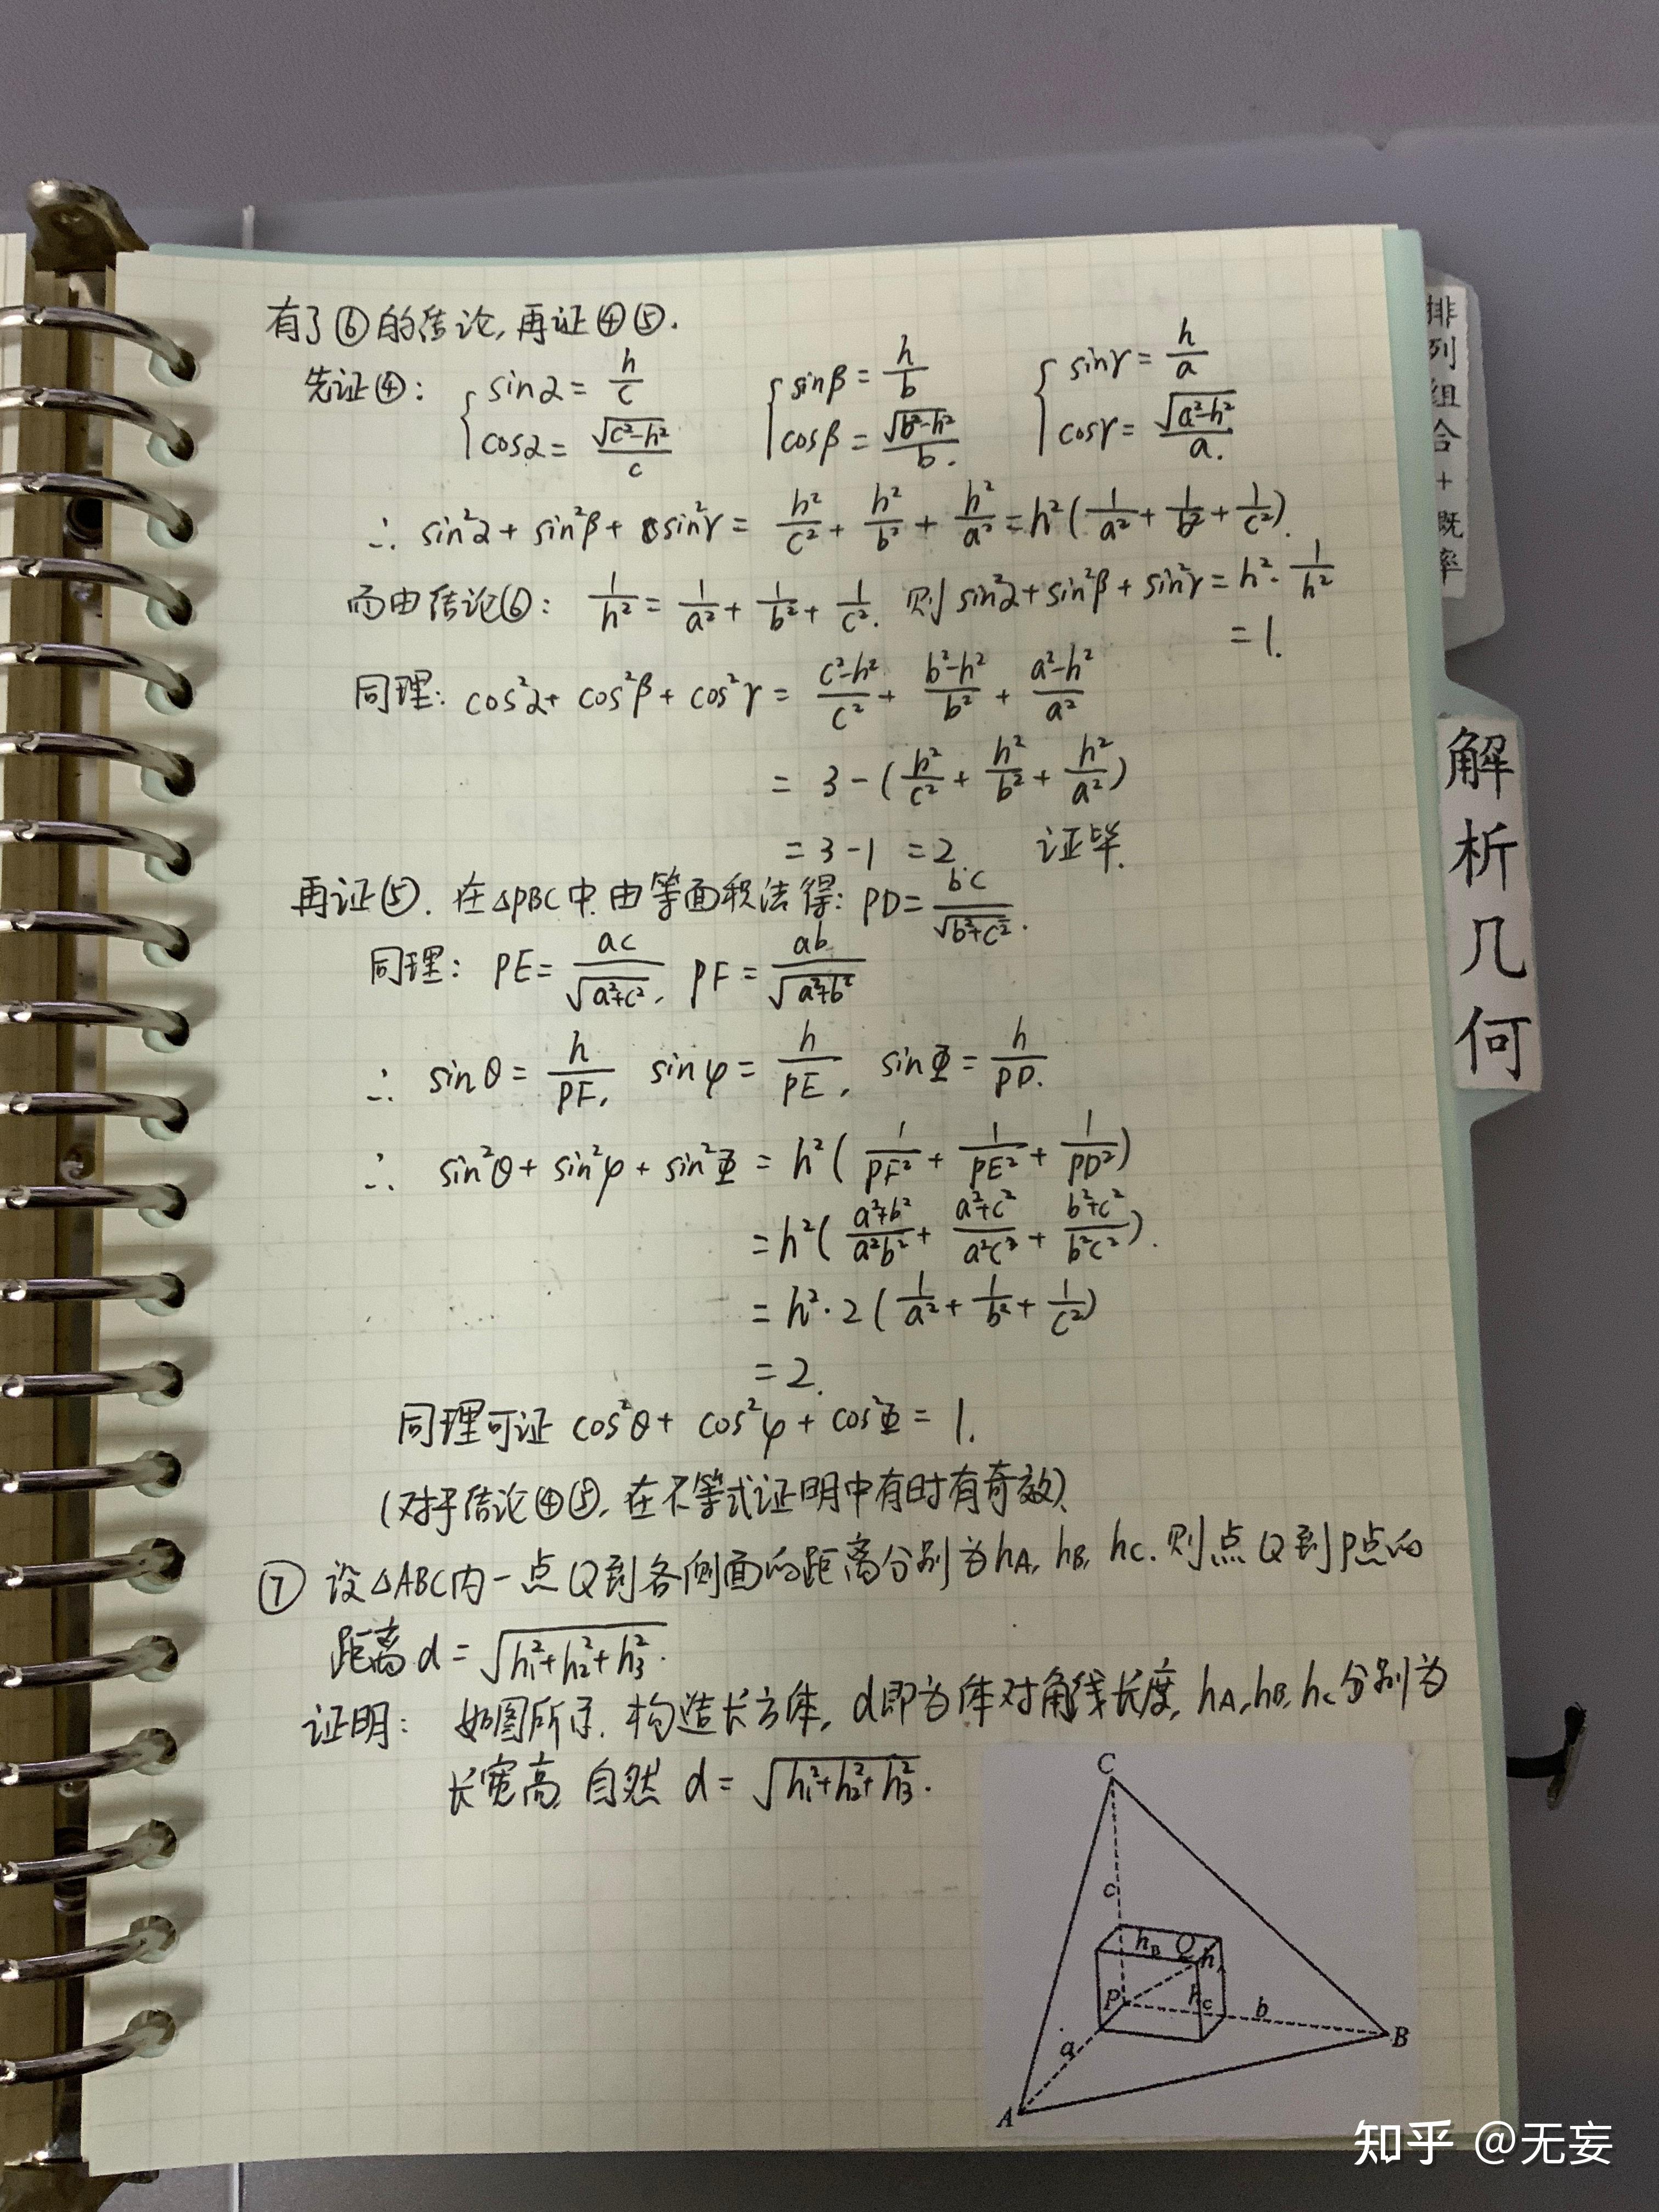 有了⑥的结论,再证④⑤.
先证④: { sinα = h/c  cosα = √(c²-h²)/c  { sinβ = h/b  cosβ = √(b²-h²)/b.  { sinγ = h/a  cosγ = √(a²-h²)/a.
∴ sin²α + sin²β + sin²γ = h²/c² + h²/b² + h²/a² = h²(1/a² + 1/b² + 1/c²).
而由结论⑥: 1/h² = 1/a² + 1/b² + 1/c². 则 sin²α + sin²β + sin²γ = h²·1/h²
= 1.
同理: cos²α + cos²β + cos²γ = (c²-h²)/c² + (b²-h²)/b² + (a²-h²)/a²
= 3 - (h²/c² + h²/b² + h²/a²)
= 3-1 = 2 证毕.
再证⑤. 在△PBC中.由等面积法得: PD = bc/√(b²+c²).
同理: PE = ac/√(a²+c²), PF = ab/√(a²+b²)
∴ sinθ = h/PF, sinφ = h/PE, sinΦ = h/PD.
∴ sin²θ + sin²φ + sin²Φ = h²(1/PF² + 1/PE² + 1/PD²)
= h²((a²+b²)/a²b² + (a²+c²)/a²c² + (b²+c²)/b²c²).
= h²·2(1/a² + 1/b² + 1/c²)
= 2.
同理可证 cos²θ + cos²φ + cos²Φ = 1.
(对于结论④⑤, 在不等式证明中有时有奇效)
⑦ 设△ABC内一点Q到各侧面的距离分别为hA, hB, hC. 则点Q到P点的
距离 d = √(h₁²+h₂²+h₃²).
证明: 如图所示. 构造长方体, d即为体对角线长度, hA, hB, hC分别为
长宽高, 自然 d = √(h₁²+h₂²+h₃²).
C
c
hB Q hA
P hC b
B
a
A
排列组合+概率
解析几何
知乎 @无妄